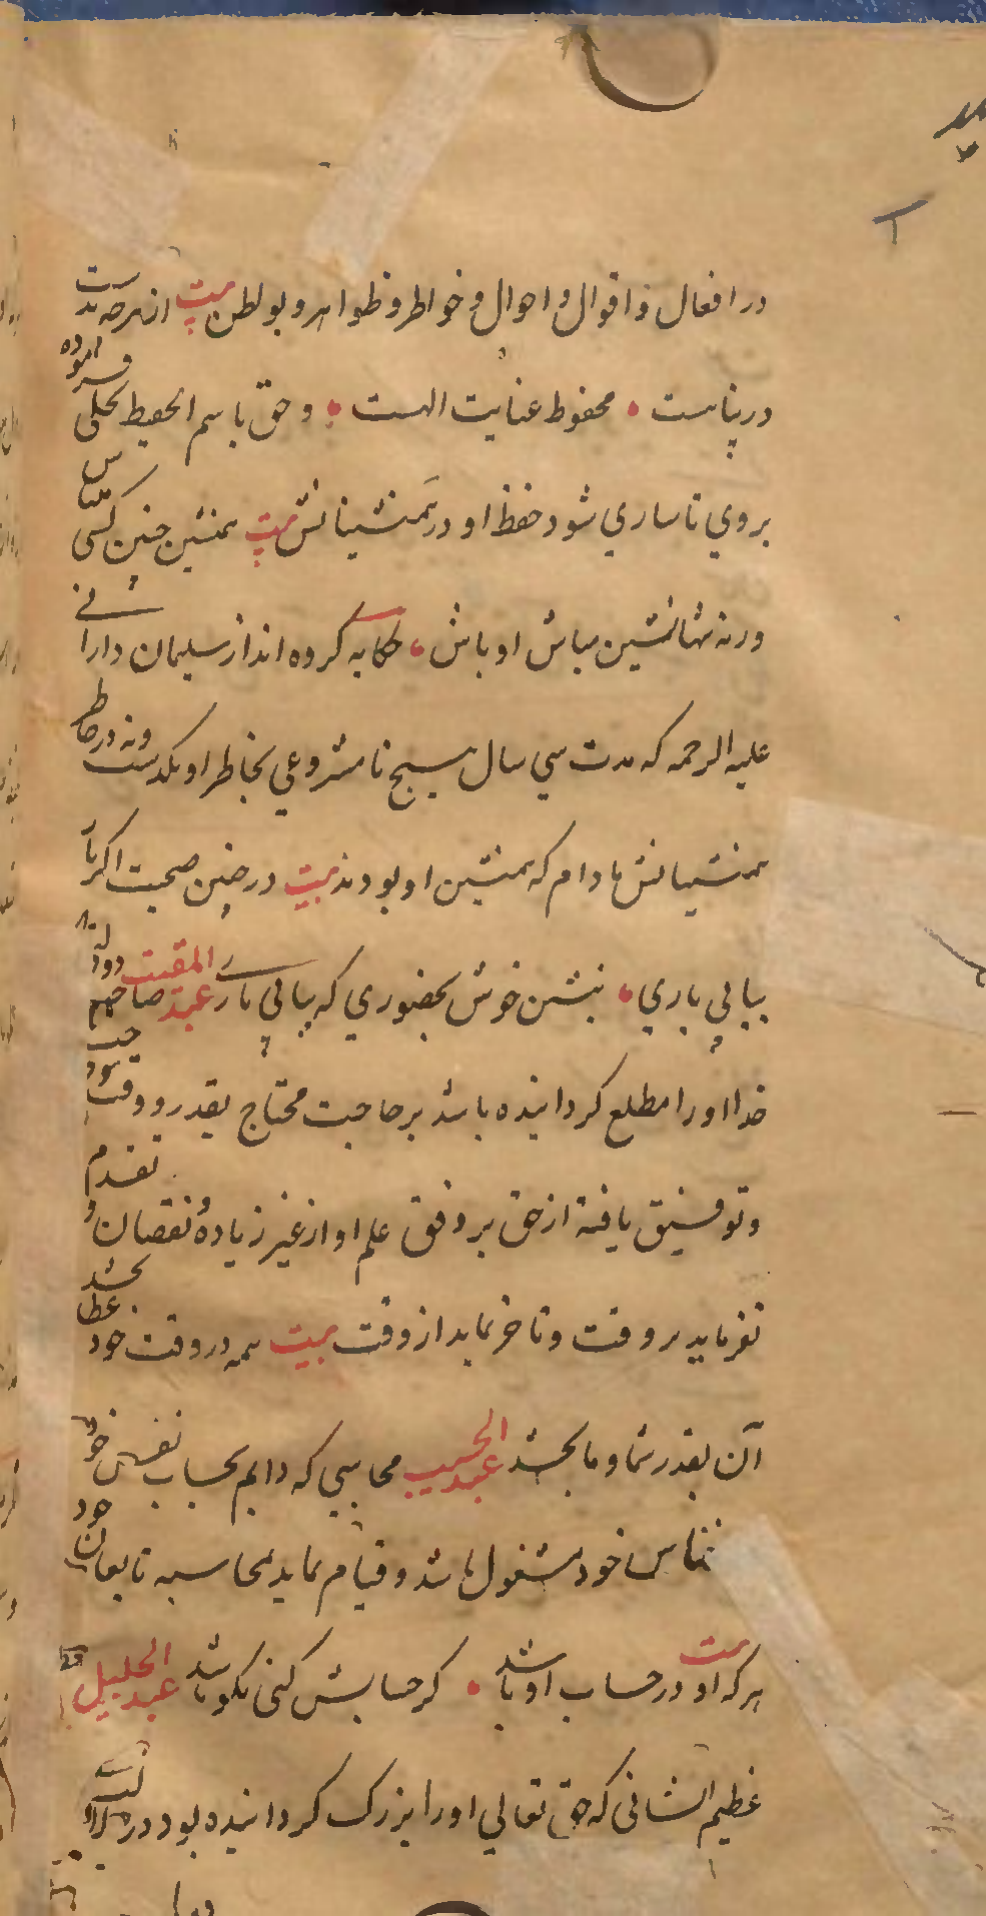 در افعال و اقوال و احوال و خواطر و ظواهر و بواطن بیت از هرچه بدست
در پناست محفوظ عنایت الهست و حق باسم الحفیظ تجلی فرموده
بروی تا ساری شود حفظ او در همنشینانش بیت همنشین چنین کسی میباش
ورنه تنها نشین مباش او باش حکایه کرده اند از سلیمان دارانی
علیه الرحمه که مدت سی سال هیچ نامشروعی بخاطر او نگذشت ونه در خاطر
همنشینانش مادام که همنشین او بودند بیت در چنین صحبت اگر تا
بیابی باری بنشین خوش بحضوری که بیابی یاری عبد المقیت صاحب دولته
خدا او را مطلع گردانیده باشد بر حاجت محتاج بقدر و وقت
و توفیق یافته از حق بر وفق علم او از غیر زیاده و نقصان و تقدم
نفرماید بر وقت و تاخر نماید از وقت بیت همه در وقت خود عطا بخشد
آن بقدر شما و ما بخشد عبد الحسیب محاسبی که دایم بحساب نفس خود
انفاس خود مشغول باشد و قیام نماید بمحاسبه تابعان خود
بیت هرکه او در حساب او باشد گر حسابش کنی نکو باشد عبد الجلیل
عظیم الشانی که حق تعالی او را بزرگ گردانیده بود در